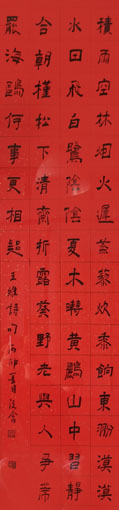 積雨空林烟火遲蒸藜炊黍餉東菑漠漠
水田飛白鷺陰陰夏木囀黃鸝山中習靜
朝槿松下清齋折露葵野老與人爭席
罷海鷗何事更相疑王維詩